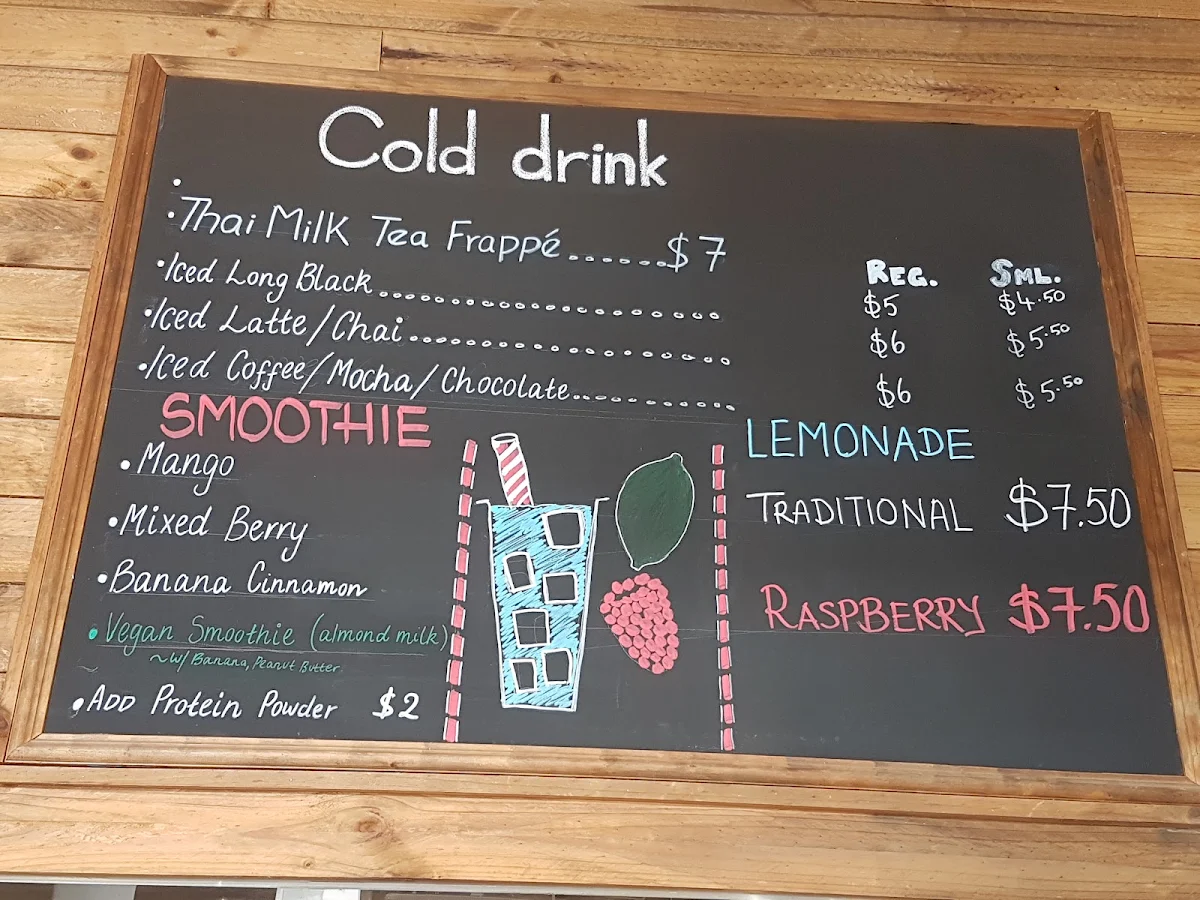 Cold drink
• Thai Milk Tea Frappé ...... $7
REG. SML.
• Iced Long Black .......................... $5 $4.50
• Iced Latte/Chai .......................... $6 $5.50
• Iced Coffee/Mocha/Chocolate .............. $6 $5.50
SMOOTHIE
• Mango
• Mixed Berry
• Banana Cinnamon
• Vegan Smoothie (almond milk)
~w/ Banana, Peanut Butter
• ADD Protein Powder $2
LEMONADE
TRADITIONAL $7.50
RASPBERRY $7.50